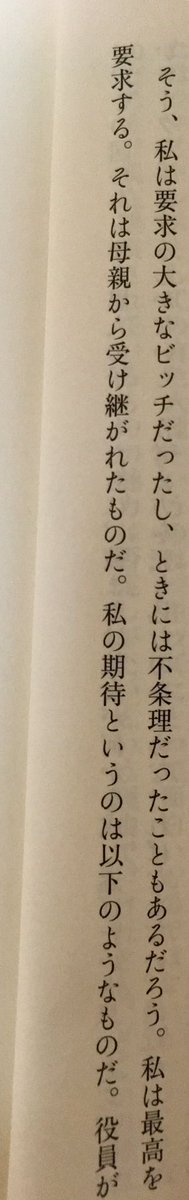 そう、私は要求の大きなビッチだったし、ときには不条理だったこともあるだろう。私は最高を
要求する。それは母親から受け継がれたものだ。私の期待というのは以下のようなものだ。役員が